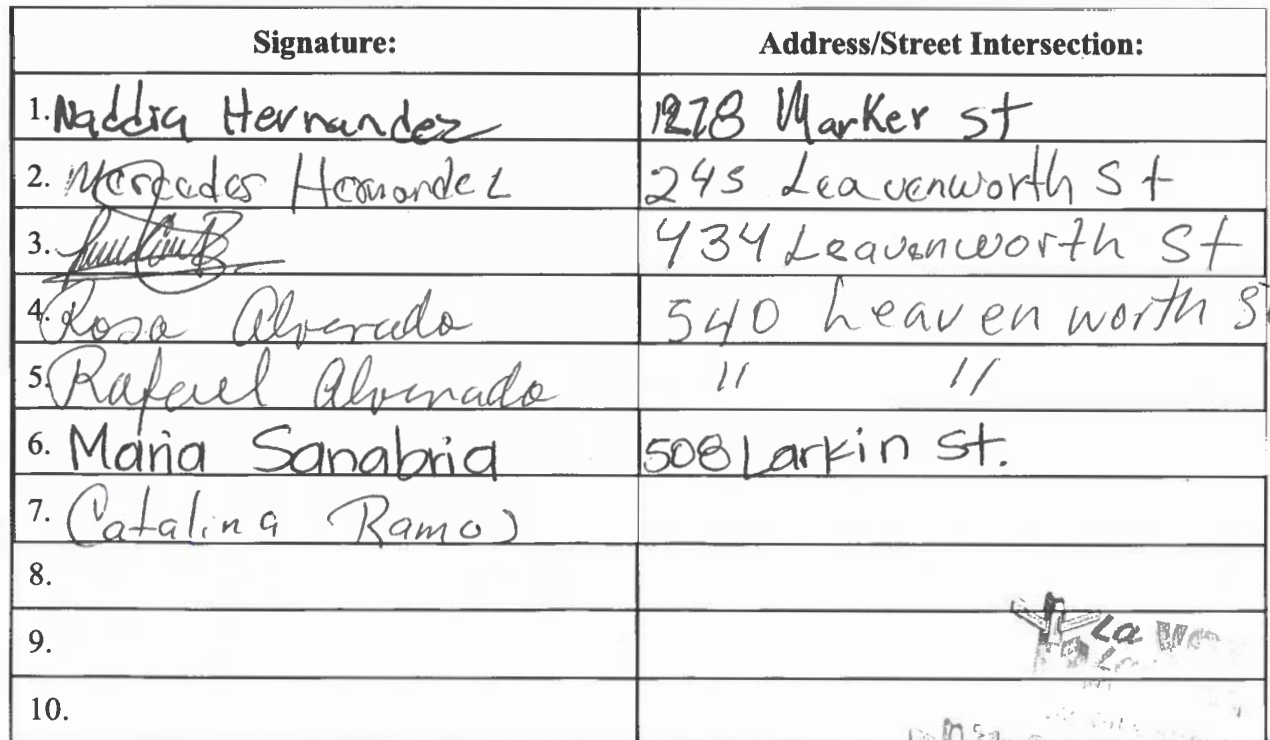 Signature: Address/Street Intersection:
1. Naddia Hernandez 1278 Marker st
2. Mercedes Hernandez 245 Leavenworth St
3. 434 Leavenworth St
4. Rosa Alverado 540 Leavenworth S
5. Rafael Alverado " "
6. Maria Sanabria 508 Larkin St.
7. Catalina Ramos
8.
9. La
10.